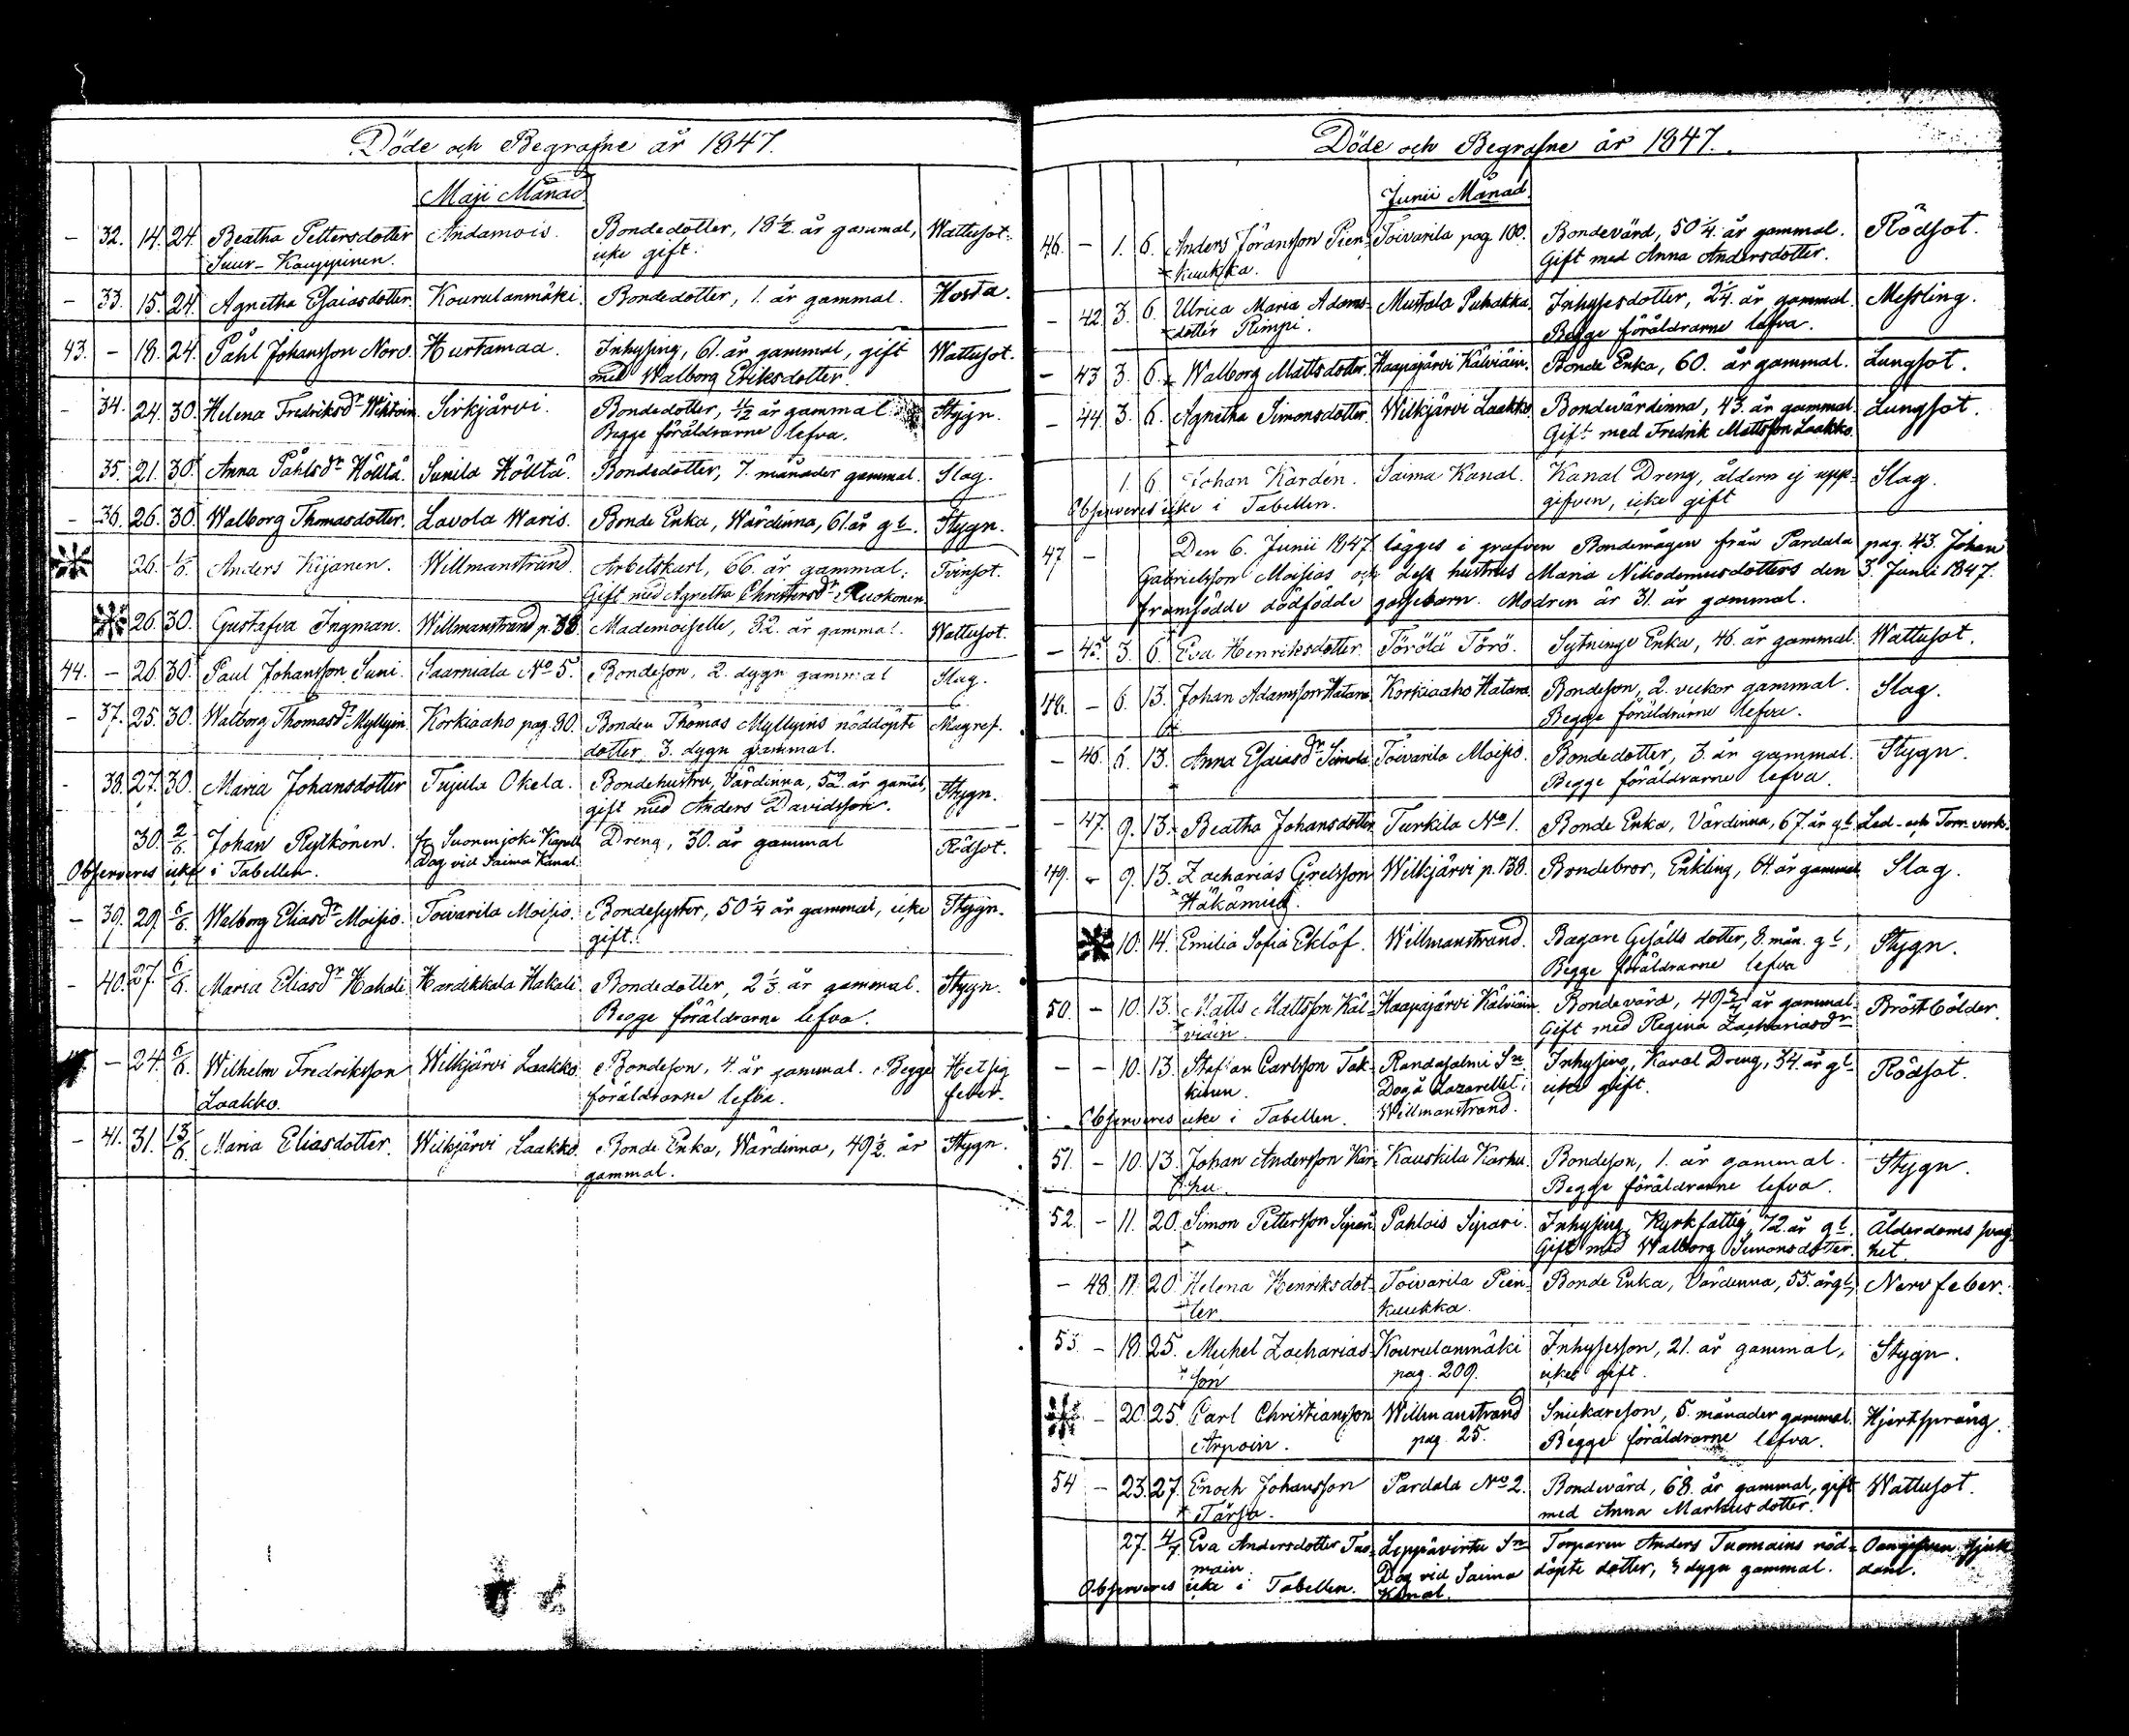 Döde och Begrafne år 1847.
Maji Månad.
– 32. 14. 24. Beatha Pettersdotter Andamois. Bondedotter, 18 1/2 år gammal, Wattusot.
Suur-Kauppinen. icke gift.
– 33. 15. 24. Agnetha Esaiasdotter. Kourulanmäki. Bondedotter, 1. år gammal. Hosta.
43. – 18. 24. Påhl Johansson Nord. Hurtamaa. Inhysing, 61. år gammal, gift Wattusot.
med Walborg Eriksdotter.
– 34. 24. 30. Helena Fredriksdr Sirkjärvi. Bondedotter, 11/12 år gammal Stygn.
Begge föräldrarne lefva.
35. 21. 30. Anna Påhlsdr Höltta. Sunila Höltta. Bondedotter, 7. månader gammal. Slag.
– 36. 26. 30. Walborg Thomasdotter. Lavola Waris. Bonde Enka, Wärdinna, 61. år gl. Stygn.
26. 1/6. Anders Kijanen. Willmanstrand. Arbetskarl, 66. år gammal. Tvinsot.
Gift med Agnetha Christersdr Ruokonen
26. 30. Gustafva Ingman. Willmanstrand p. 38. Mademoiselle, 32. år gammal. Wattusot.
44. – 26. 30. Paul Johansson Suni. Saarniala No 5. Bondeson, 2. dygn gammal Slag.
– 37. 25. 30. Walborg Thomasdr Myllyin. Korkiaaho pag. 80. Bonden Thomas Myllyins nöddöpte Magref.
dotter, 3. dygn gammal.
38. 27. 30. Maria Johansdotter Tujula Okela. Bondehustru, Värdinna, 52. år gamal, Stygn.
gift med Anders Davidsson.
30. 2/6. Johan Rytkönen. fr Suonenjoki Kapell Dreng, 30. år gammal Rödsot.
Observeres icke i Tabellen. Dog vid Saima Kanal.
– 39. 29. 6/6. Walborg Eliasdr Moisio. Toivarila Moisio. Bondesyster, 50 1/4 år gammal, icke Stygn.
gift.
– 40. 27. 6/6. Maria Eliasdr Hakali Hardikkala Hakali. Bondedotter, 2 1/3. år gammal. Stygn.
Begge föräldrarne lefva.
– 24. 6/6. Wilhelm Fredriksson Wilkjärvi Laakko. Bondeson, 4. år gammal. Begge Hetsig
Laakko. föräldrarne lefva. feber.
– 41. 31. 13/6. Maria Eliasdotter. Wilkjärvi Laakko. Bonde Enka, Wärdinna, 49 1/2. år Stygn.
gammal.
Döde och Begrafne år 1847.
Junii Månad.
46. – 1. 6. Anders Jöransson Pien- Toivarila pag. 100. Bondevärd, 50 1/4. år gammal. Rödsot.
kuukka. Gift med Anna Andersdotter.
– 42. 3. 6. Ulrica Maria Adams- Mustola Puhakka. Inhysesdotter, 2 1/4. år gammal. Messling.
dotter Rimpi. Begge föräldrarne lefva.
– 43 3. 6. Walborg Mattsdotter. Haapajärvi Kälviäin. Bonde Enka, 60. år gammal. Lungsot.
– 44. 3. 6. Agnetha Simonsdotter. Wilkjärvi Laakko. Bondevärdinna, 43. år gammal. Lungsot.
Gift med Fredrik Mattsson Laakko.
1. 6. Johan Kardén. Saima Kanal. Kanal Dreng, åldern ej upp- Slag.
Observeres icke i Tabellen. gifven, icke gift
47 – Den 6. Junii 1847 lägges i grafven Bondemågen från Pardala pag. 43. Johan
Gabrielsson Moisias och dess hustrus Maria Nikodemusdotters den 3. Junii 1847.
framfödde dödfödde gossebarn. Modren är 31. år gammal.
– 45. 3. 6. Eva Henriksdotter. Törölä Törö. Sytninge Enka, 46. år gammal. Wattusot.
48. – 6. 13. Johan Adamsson Hatara. Korkiaaho Hatara. Bondeson, 2. veckor gammal. Slag.
Begge föräldrarne lefva.
– 46. 6. 13. Anna Esaiasdr Simola Toivarila Moisio. Bondedotter, 3. år gammal. Stygn.
Begge föräldrarne lefva.
– 47. 9. 13. Beatha Johansdotter Turkila No 1. Bonde Enka, Värdinna, 67. år gl. Led- och Torr-verk.
49. – 9. 13. Zacharias Grelsson Wilkjärvi p. 138. Bondebror, Enkling, 64. år gammal. Slag.
Häkämies.
10. 14. Emilia Sofia Eklöf. Willmanstrand. Bagare Gesälls dotter, 8. mån. gl, Stygn.
Begge föräldrarne lefva
50. – 10. 13. Matts Mattsson Käl- Haapajärvi Kälviäin. Bondevärd, 49 3/4 år gammal. Bröstbölder.
viäin. Gift med Regina Zachariasdr
– – 10. 13. Stefan Carlsson Tak- Randasalmi Sn Inhysing, Kanal Dreng, 34. år gl. Rödsot.
kinen. Dog å Lazarettet i icke gift.
Observeres icke i Tabellen. Willmanstrand.
51. – 10. 13. Johan Andersson Kar- Kauskila Karhu. Bondeson, 1. år gammal. Stygn.
hu. Begge föräldrarne lefva.
52. – 11. 20. Simon Pettersson Sipari Pahlois Sipari. Inhysing, Kyrkfattig, 72. år gl. Ålderdoms svag-
Gift med Walborg Simonsdotter. het.
– 48. 11. 20. Helena Henriksdot- Toivarila Pien- Bonde Enka, Värdinna, 55. år gl, Nervfeber.
ter. kuukka.
53. – 18. 25. Michel Zacharias- Kourulanmäki Inhysesson, 21. år gammal, Stygn.
son pag. 209. icke gift.
– 20. 25. Carl Christiansson Willmanstrand Snickareson, 5. månader gammal. Hjertsprång.
Arpoin. pag. 25. Begge föräldrarne lefva.
54 – 23. 27. Enoch Johansson Pardala No 2. Bondevärd, 68. år gammal, gift Wattusot.
Tarsa. med Anna Markusdotter.
27. 4/7. Eva Andersdotter Tuo- Leppävirta Sn Torparen Anders Tuomains nöd- Oangifven sjuk-
main. Dog vid Saima döpte dotter, dygn gammal. dom.
Observeres icke i Tabellen. Kanal.